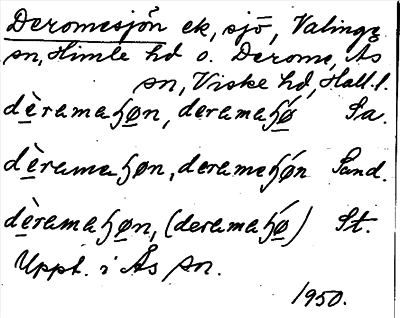 Deromesjön ek, sjö, Valinge
sn, Himle hd o. Derome, Ås
sn, Viske hd, Hall.l.
dèramaɧøn, deramaɧǿ Sa.
dèramaɧøn, derameɧǿn Sand.
dèramaɧøn, (deramaɧǿ) St.
Uppt. i Ås sn.
1950.